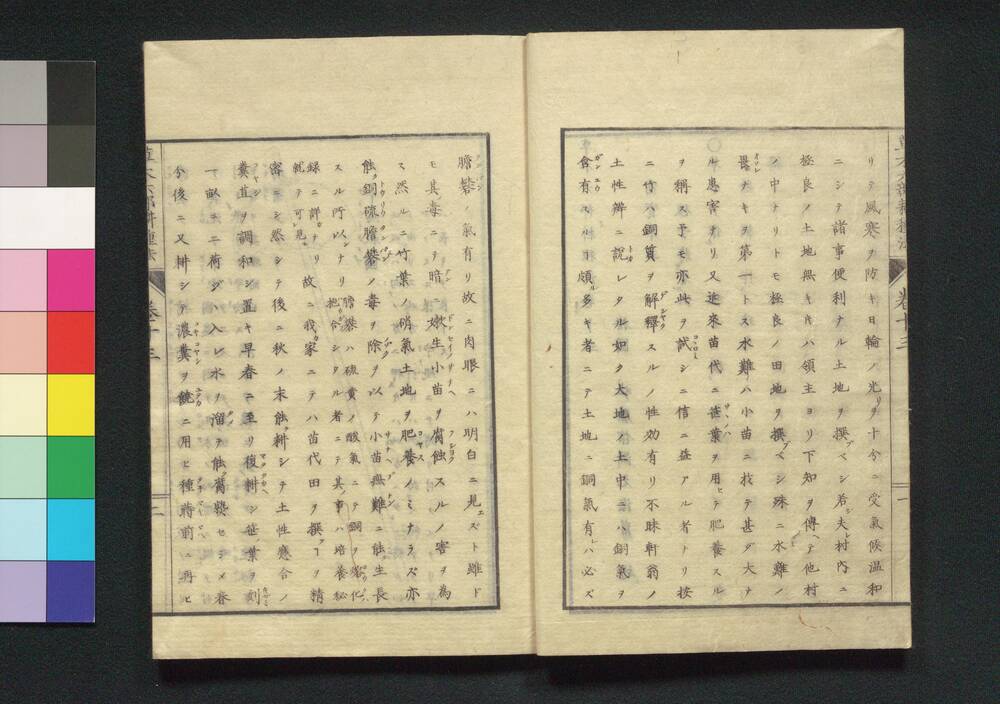 リテ風寒ヲ防キ日輪ノ光リヲ十今ニ受氣候温和
ニシテ諸事便利ナル土地ヲ撰ブベシ若シ夫レ村内ニ
極良ノ土地無キ片ハ領主ヨリ下知ヲ傳ヘテ他村
ノ中ナリトモ極良ノ田地ヲ撰ブベシ殊ニ水難ノ
畏レナキヲ第一トス水難ハ小苗ニ於テ甚ダ大ナ
ル患害ナリ又近來苗代ニ笹葉ヲ用ヒテ肥養スル
ヲ稱ス予モ亦此ヲ試シニ信ニ益アル者ナリ按
ニ竹ハ銅質ヲ解釋スルノ性効有リ不昧軒翁ノ
土性辨ニ説レタル如ク大地ノ土中ニハ銅氣ヲ
含有スルヿ頗ル多キ者ニテ土地ニ銅氣有レハ必ズ
膽礬ノ氣有リ故ニ肉眼ニハ明白ニ見エズト雖ド
モ其毒ニテ暗ニ嫩生小苗ヲ腐蝕スルノ害ヲ為
ス然ルニ竹葉ノ硝氣土地ヲ肥養スノミナラズ亦
能ク銅硫膽礬ノ毒ヲ除クヲ以テ小苗無難ニ能生長
スル所以ナリ膽礬ハ硫黄ノ酸氣ニテ銅ヲ變化把合シタル者ニテ其事ハ培養秘
録ニ詳ナリ就テ可見故ニ我家ニテハ苗代田ヲ撰ブヿヲ精
密ニシ然シテ後ニ秋ノ末能ク耕シテ土性應合ノ
糞苴ヲ調和シ置キ早春ニ至リ復耕シ笹ノ葉ヲ刻
一畝ニ二荷ヅヽ入レ水ヲ溜テ能ク蔫㯃セシメ春
今後ニ又耕シテ濃糞ヲ饒ニ用ヒ種蒔前ニ再ヒ
卷十三
一
卷十三
二